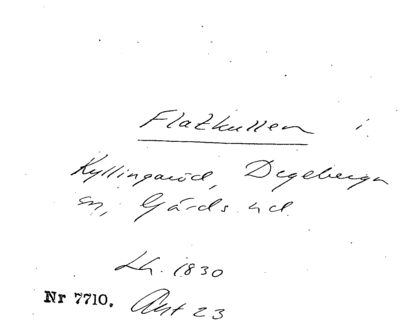 Flatkullen i
Kyllingaröd, Degeberga
sn, Gärds hd.
Lh. 1830
Nr 7710. Akt 23